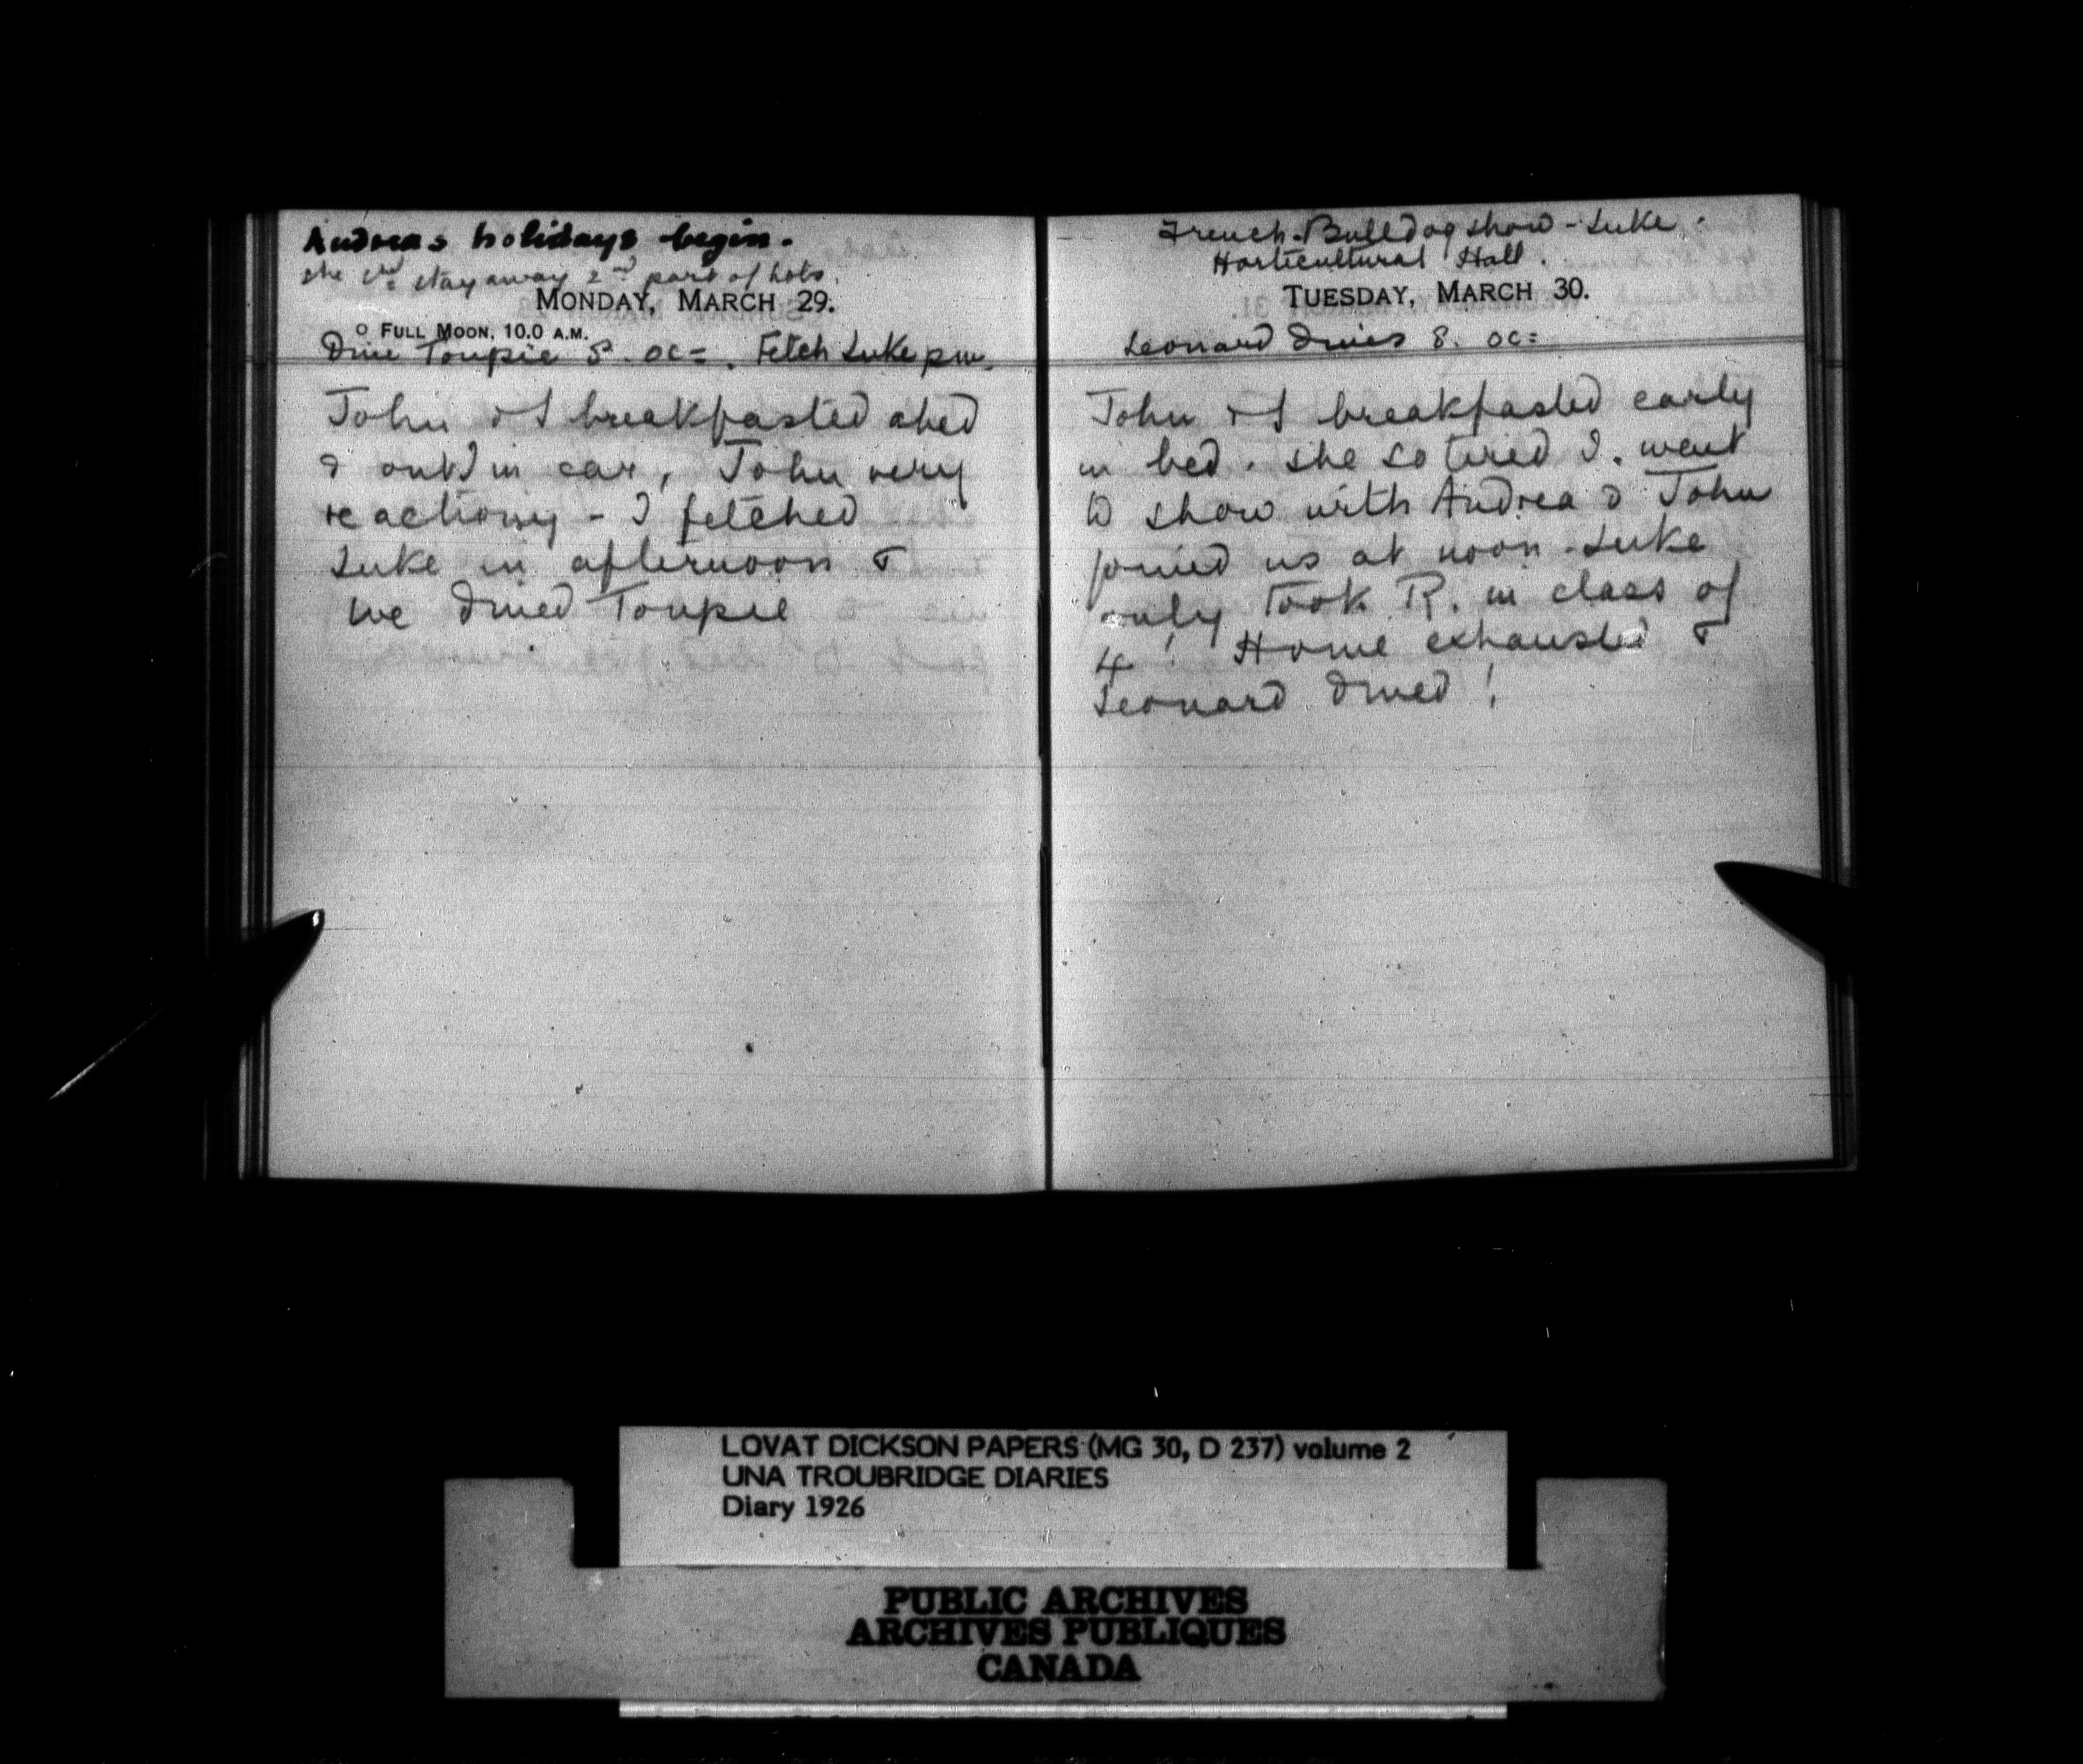 Andreas holidays begin.
she cd stay away 2nd part of hols.
MONDAY, MARCH 29.
○ FULL MOON, 10.0 A.M.
Dine Toupie 8. oc= . Fetch Luke pm.
John & I breakfasted abed
& out in car, John very
reactiony - I fetched
Luke in afternoon &
we dined Toupie
French-Bulldog show - Luke.
Horticultural Hall.
TUESDAY, MARCH 30.
Leonard dines 8. oc=
John & I breakfasted early
in bed. she so tired I. went
to show with Andrea & John
joined us at noon - Luke
only took R. in class of
4! Home exhausted &
Leonard dined!
LOVAT DICKSON PAPERS (MG 30, D 237) volume 2
UNA TROUBRIDGE DIARIES
Diary 1926
PUBLIC ARCHIVES
ARCHIVES PUBLIQUES
CANADA